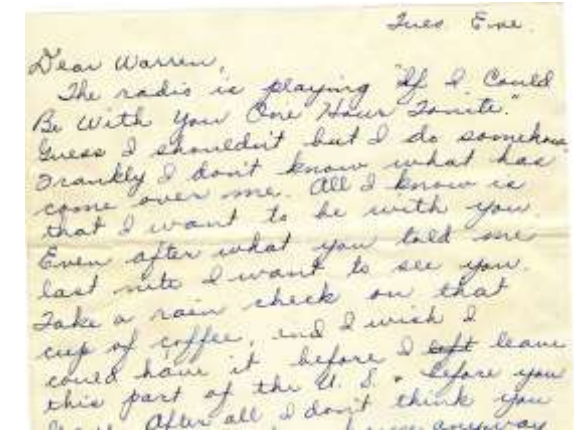 Tues Eve.
Dear Warren,
The radio is playing "If I Could
Be With You One Hour Tonite."
Guess I shouldn't but I do somehow.
Frankly I don't know what has
come over me. All I know is
that I want to be with you.
Even after what you told me
last nite I want to see you.
Take a rain check on that
cup of coffee, and I wish I
could have it before I left leave
this part of the U. S. Before you
leave. After all I don't think you
anyway